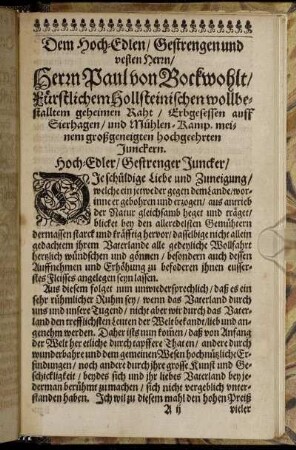 Dem Hoch-Edlen/ Gestrengen und
vesten Herrn/
Herrn Paul von Bockwohlt/
Fürstlichem Hollsteinischen wollbe-
stalltem geheimen Raht/ Erbgesessen auff
Sierhagen/ und Mühlen-Kamp. mei-
nem großgeneigten hochgeehrten
Junckern.
Hoch-Edler/ Gestrenger Juncker/
DJe schüldige Liebe und Zuneigung/
welche ein jeweder gegen dem Lande/wor-
inne er gebohren und erzogen/ aus anrieb
der Natur gleichsamb heget und träget/
blicket bey den alleredelsten Gemühtern
dermassen starck und kräfftig hervor/ dasselbige nicht allein
gedachtem ihrem Vaterlande alle gedeyliche Wollfahrt
hertzlich wündschen und gönnen/ besondern auch dessen
Auffnehmen und Erhöhung zu befoderen ihnen eusser-
stes Fleisses angelegen seyn lassen.
Aus diesem folget nun unwiedersprechlich/ daß es ein
sehr rühmlicher Ruhm sey/ wenn das Vaterland durch
uns und unsere Tugend/ nicht aber wir durch das Vater-
land den trefflichsten Leuten der Welt bekandt/lieb und an-
genehm werden. Daher ists nun kommen/ daß von Anfang
der Welt her etliche durch tapffere Thaten/ andere durch
wunderbahre und dem gemeinen Wesen hochnützliche Er-
findungen/ noch andere durch ihre grosse Kunst und Ge-
schicklichkeit/ beydes sich und ihr liebes Vaterland bey je-
derman berühmt zu machen/ sich nicht vergeblich unter-
standen haben. Jch wil zu diesem mahl den hohen Preiß
A ij vieler